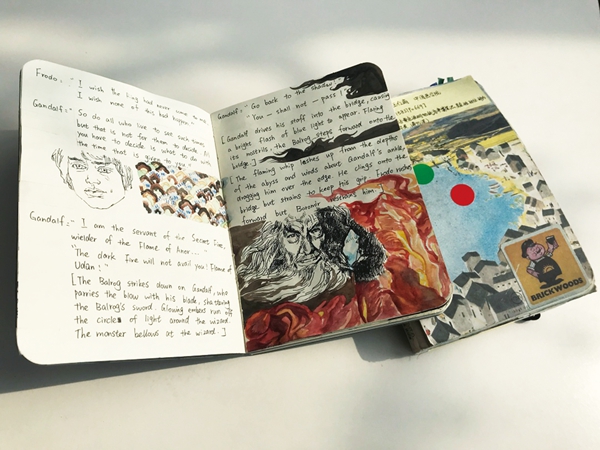 Frodo: "I wish the Ring had never come to me.
I wish none of this had happened."
Gandalf: "So do all who live to see such times,
but that is not for them to decide. All
you have to decide is what to do with
the time that is given to you."
Gandalf: - I am the servant of the Secret Fire,
wielder of the Flame of Anor...."
"The dark fire will not avail you! Flame of
Udûn!"
[The Balrog strikes down on Gandalf, who
parries the blow with his blade, shattering
the Balrog's sword. Glowing embers run off
the circles of light around the wizard.
The monster bellows at the wizard.]
Gandalf: "Go back to the shadow.
"You — shall not — pass!"
[Gandalf drives his staff into the bridge, causing
a bright flash of blue light to appear. Flaring
its nostrils, the Balrog steps forward onto the
bridge.]
[The flaming whip lashes up from the depths
of the abyss and winds about Gandalf's ankle,
dragging him over the edge. He clings onto the
bridge but strains to keep his grip. Frodo rushes
forward but Boromir restrains him.]
BRICKWOODS